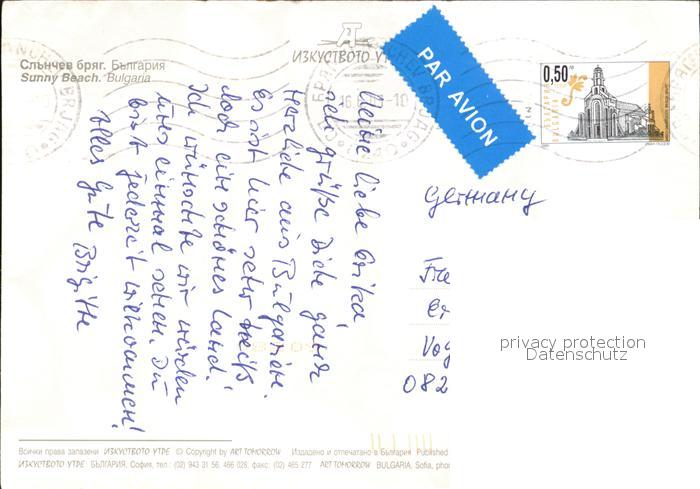 Слънчев бряг. България
Sunny Beach. Bulgaria
ИЗКУСТВОТО УТРЕ
PAR AVION
0,50
БЪЛГАРИЯ
BULGARIA
Meine liebe Erika,
ich grüße Dich ganz
herzliche aus Bulgarien.
Es ist hier sehr heiß
doch ein schönes Land!
Ich wünschte wir würden
uns einmal sehen. Du
bist jederzeit willkommen!
Alles Gute Brigitte
Germany
Fre
Er
Vog
082
privacy protection
Datenschutz
Всички права запазени ИЗКУСТВОТО УТРЕ © Copyright by ART TOMORROW Издадено и отпечатано в България Published
ИЗКУСТВОТО УТРЕ БЪЛГАРИЯ, София, тел.: (02) 943 31 56, 466 026, факс: (02) 465 277 ART TOMORROW BULGARIA, Sofia, phon